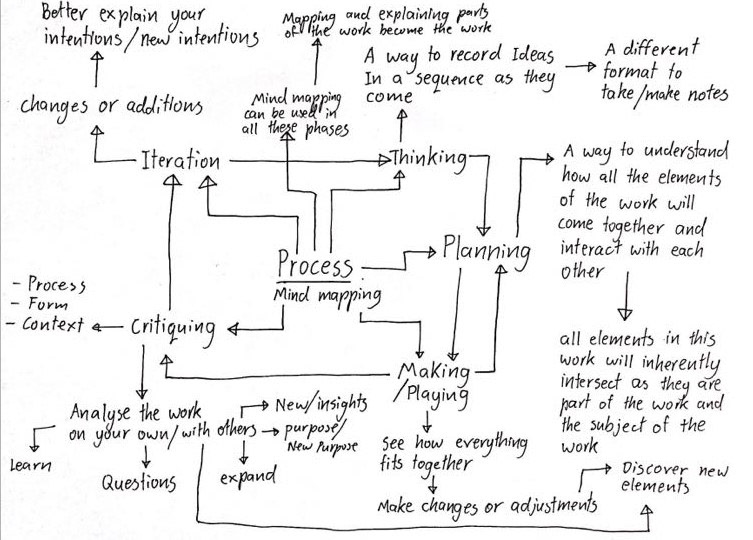 Better explain your
intentions/new intentions
Mapping and explaining parts
of the work become the work
A way to record Ideas
In a sequence as they
come
A different
format to
take/make notes
changes or additions
Mind mapping
can be used in
all these phases
Iteration
Thinking
A way to understand
how all the elements
of the work will
come together and
interact with each
other
Planning
Process
Mind mapping
- Process
- Form
- Context
Critiquing
all elements in this
work will inherently
intersect as they are
part of the work and
the subject of the
work
Making
/Playing
Analyse the work
on your own/with others
New/insights
purpose/
New Purpose
Learn
Questions
expand
See how everything
fits together
Make changes or adjustments
Discover new
elements